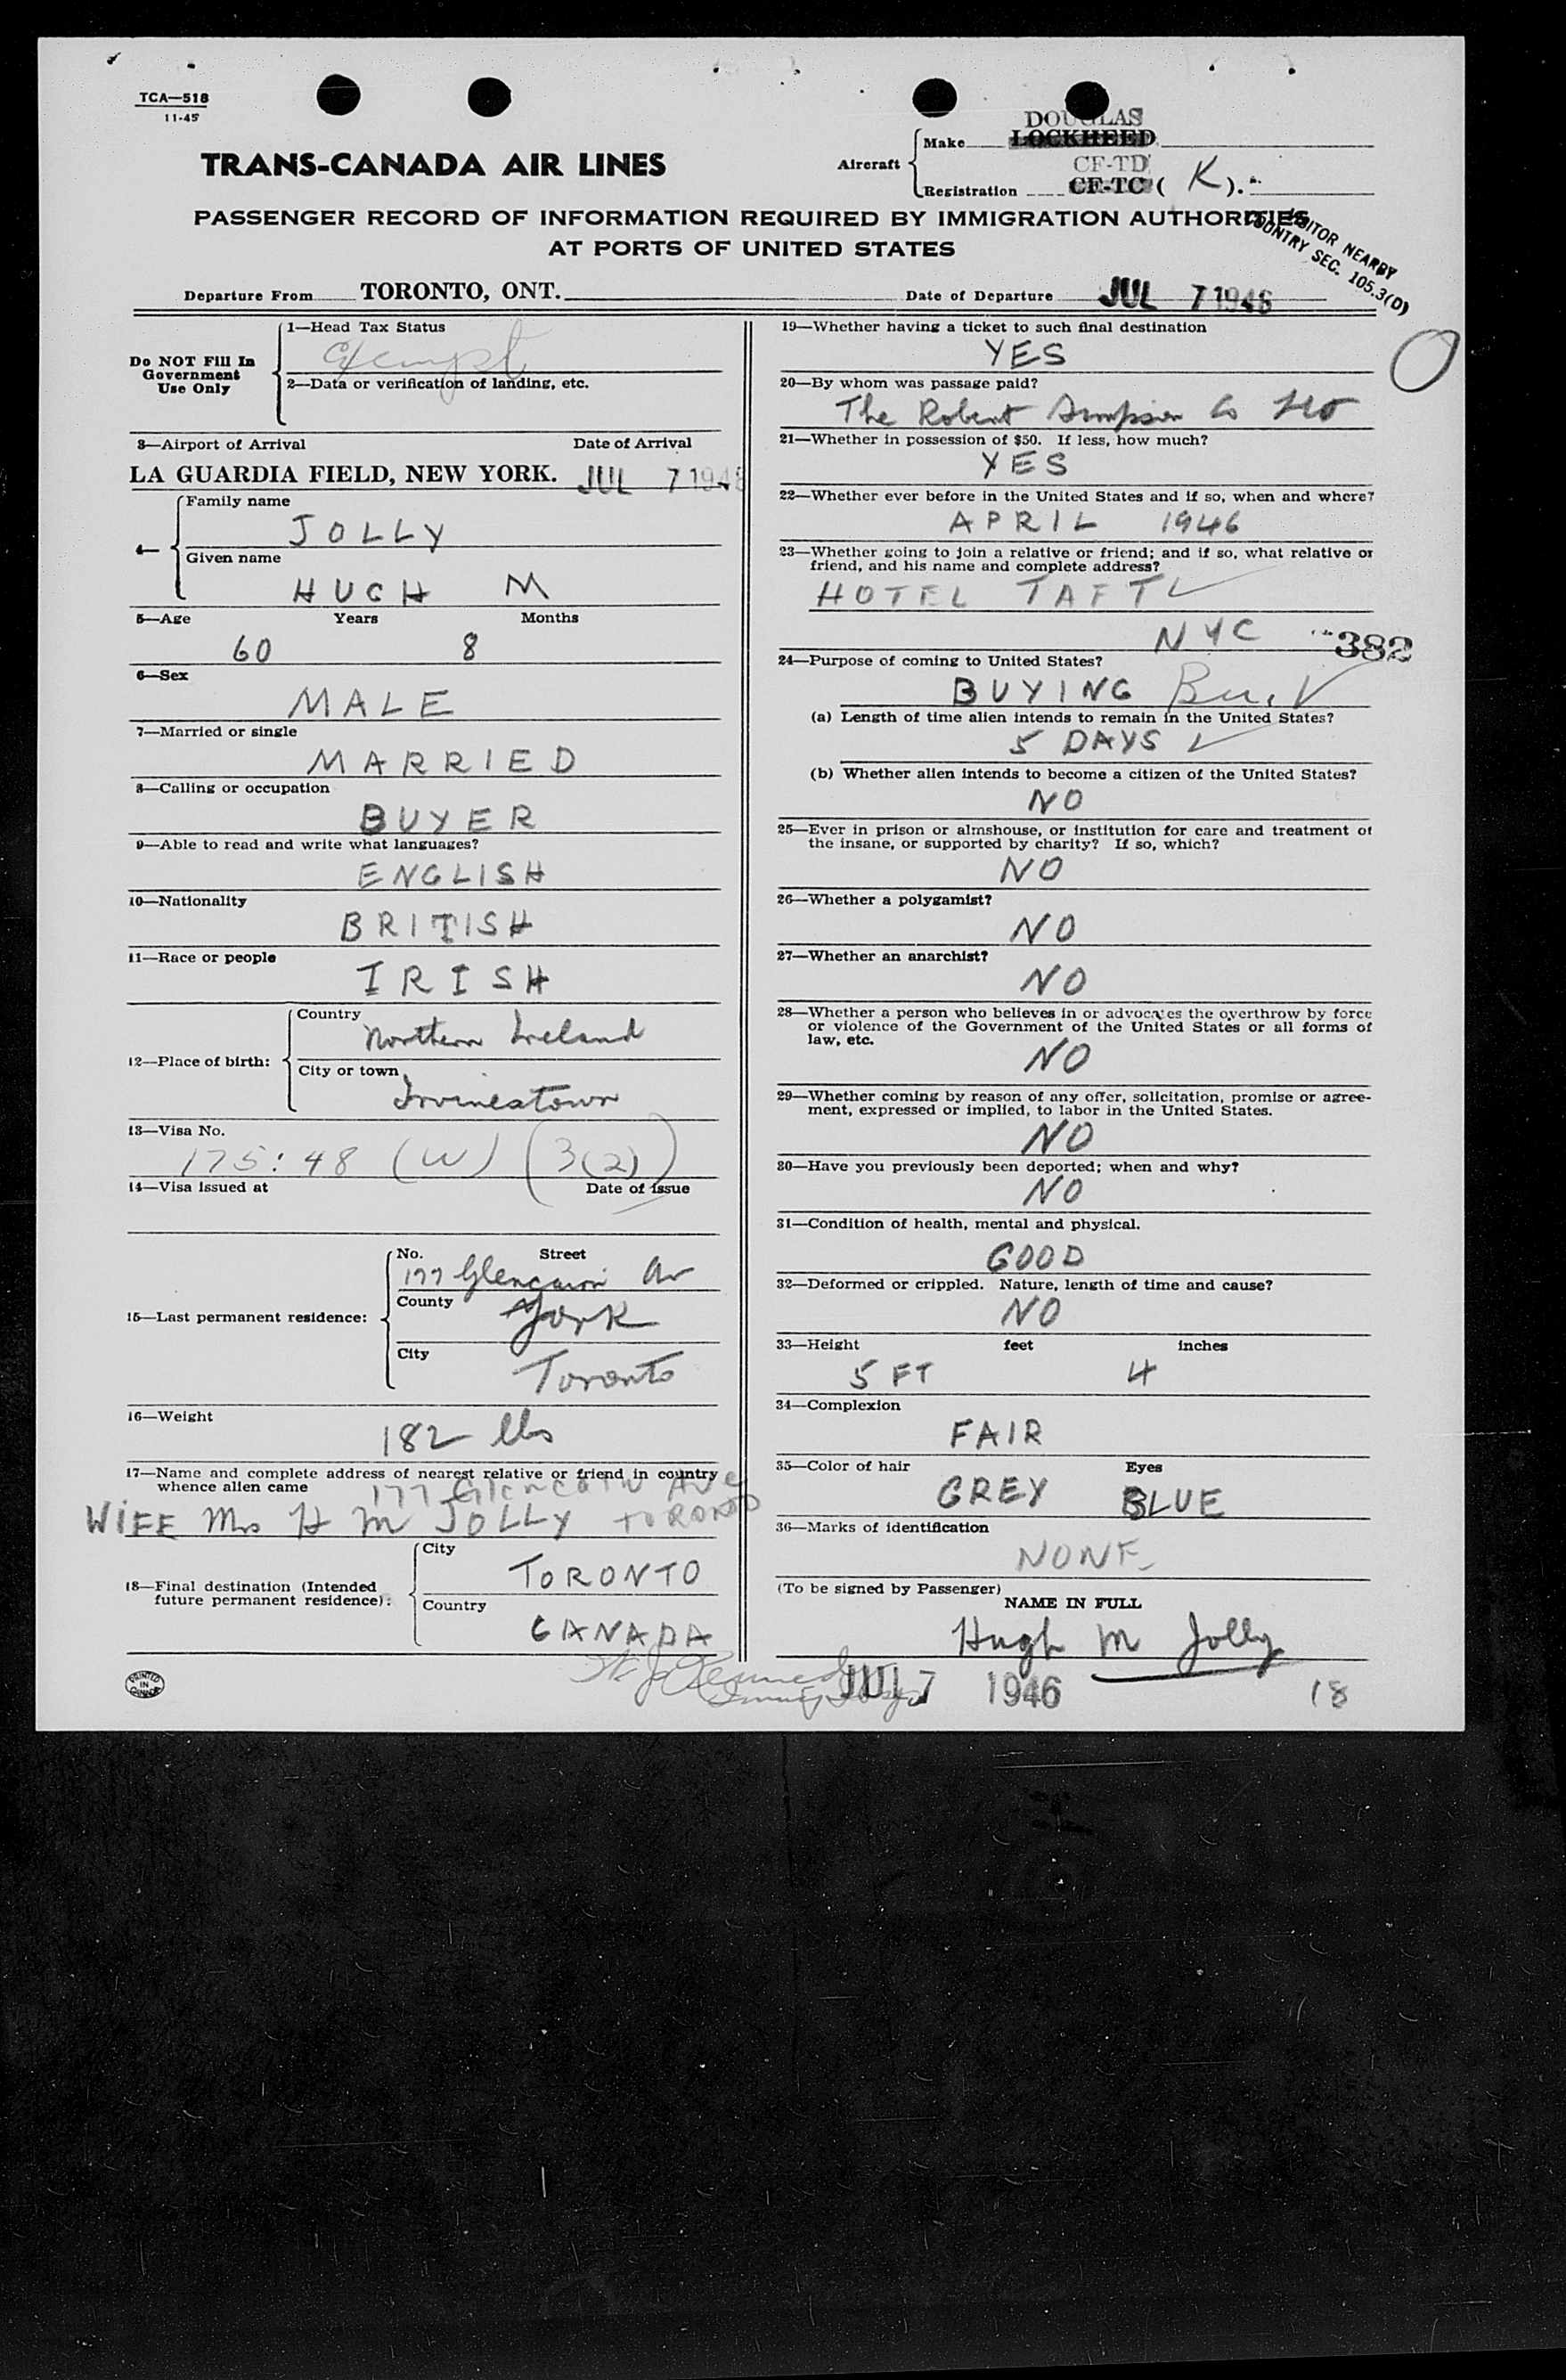 TCA—518
11-45
TRANS-CANADA AIR LINES
Aircraft
Make DOUGLAS
LOCKHEED
CF-TD
Registration CF-TC ( K ).
PASSENGER RECORD OF INFORMATION REQUIRED BY IMMIGRATION AUTHORITIES
AT PORTS OF UNITED STATES
VISITOR NEARBY
COUNTRY SEC. 105.3(D)
Departure From TORONTO, ONT.
Date of Departure JUL 7 1946
Do NOT Fill In
Government
Use Only
1—Head Tax Status
Exempt
2—Data or verification of landing, etc.
3—Airport of Arrival Date of Arrival
LA GUARDIA FIELD, NEW YORK. JUL 7 1946
4—
Family name
JOLLY
Given name
HUGH M
5—Age Years Months
60 8
6—Sex
MALE
7—Married or single
MARRIED
8—Calling or occupation
BUYER
9—Able to read and write what languages?
ENGLISH
10—Nationality
BRITISH
11—Race or people
IRISH
12—Place of birth:
Country
Northern Ireland
City or town
Irvinestown
13—Visa No.
175:48 (W) (3(2))
14—Visa issued at Date of issue
15—Last permanent residence:
No. Street
177 Glencairn Av
County
York
City
Toronto
16—Weight
182 lbs
17—Name and complete address of nearest relative or friend in country
whence alien came 177 Glencairn Ave
WIFE Mrs H M JOLLY TORONTO
18—Final destination (Intended
future permanent residence):
City
TORONTO
Country
CANADA
PRINTED
IN
CANADA
19—Whether having a ticket to such final destination
YES
20—By whom was passage paid?
The Robert Simpson Co Ltd
21—Whether in possession of $50. If less, how much?
YES
22—Whether ever before in the United States and if so, when and where?
APRIL 1946
23—Whether going to join a relative or friend; and if so, what relative or
friend, and his name and complete address?
HOTEL TAFT
NYC 382
24—Purpose of coming to United States?
BUYING Bus.
(a) Length of time alien intends to remain in the United States?
5 DAYS
(b) Whether alien intends to become a citizen of the United States?
NO
25—Ever in prison or almshouse, or institution for care and treatment of
the insane, or supported by charity? If so, which?
NO
26—Whether a polygamist?
NO
27—Whether an anarchist?
NO
28—Whether a person who believes in or advocates the overthrow by force
or violence of the Government of the United States or all forms of
law, etc.
NO
29—Whether coming by reason of any offer, solicitation, promise or agree-
ment, expressed or implied, to labor in the United States.
NO
30—Have you previously been deported; when and why?
NO
31—Condition of health, mental and physical.
GOOD
32—Deformed or crippled. Nature, length of time and cause?
NO
33—Height feet inches
5 FT 4
34—Complexion
FAIR
35—Color of hair Eyes
GREY BLUE
36—Marks of identification
NONE
(To be signed by Passenger)
NAME IN FULL
Hugh M Jolly
JUL 7 1946
18